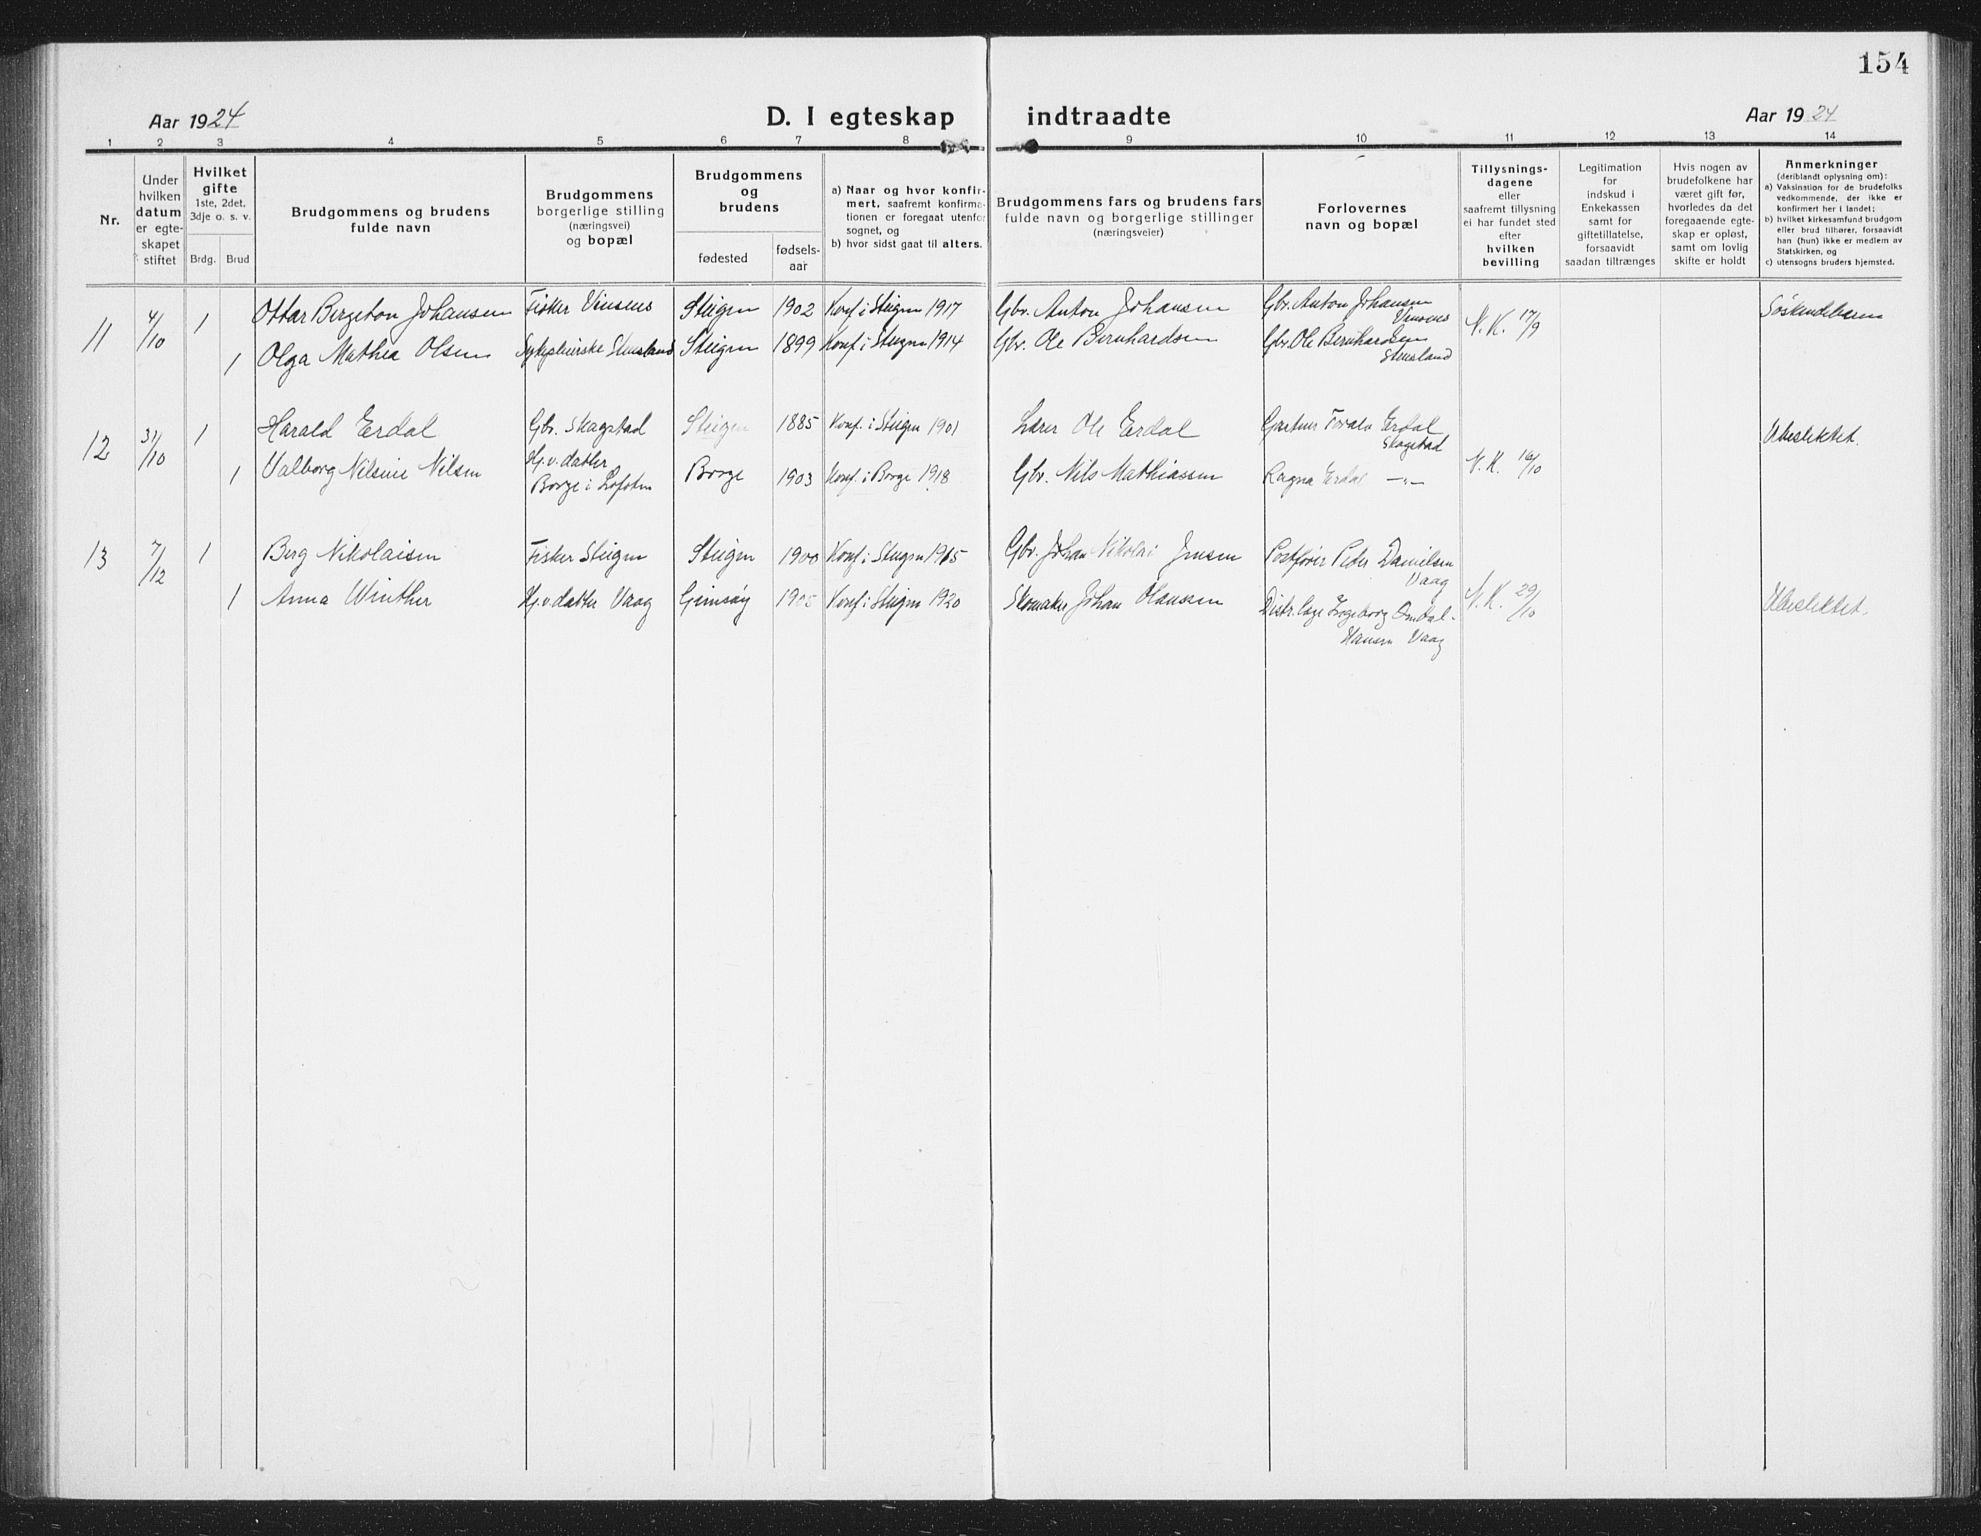 154
Aar 1924
D. I egteskap indtraadte
Aar 1924
1 2 3 4 5 6 7 8 9 10 11 12 13 14
Nr.
Under
hvilken
datum
er egte-
skapet
stiftet
Hvilket
gifte
1ste, 2det,
3dje o. s. v.
Brdg. Brud
Brudgommens og brudens
fulde navn
Brudgommens
borgerlige stilling
(næringsvei)
og bopæl
Brudgommens
og
brudens
fødested
fødsels-
aar
a) Naar og hvor konfir-
mert, saafremt konfirma-
tionen er foregaat utenfor
sognet, og
b) hvor sidst gaat til alters.
Brudgommens fars og brudens fars
fulde navn og borgerlige stillinger
(næringsveier)
Forlovernes
navn og bopæl
Tillysnings-
dagene
eller
saafremt tillysning
ei har fundet sted
efter
hvilken
bevilling
Legitimation
for
indskud i
Enkekassen
samt for
giftetillatelse,
forsaavidt
saadan tiltrænges
Hvis nogen av
brudefolkene har
været gift før,
hvorledes da det
foregaaende egte-
skap er opløst,
samt om lovlig
skifte er holdt
Anmerkninger
(deriblandt oplysning om):
a) Vaksination for de brudefolks
vedkommende, der ikke er
konfirmert her i landet;
b) hvilket kirkesamfund brudgom
eller brud tilhører, forsaavidt
han (hun) ikke er medlem av
Statskirken, og
c) utensogns bruders hjemsted.
11 4/10 1 Ottar Bergeton Johansen Fisker Vinsnes Steigen 1902 Konf. i Steigen 1917 Gbr. Anton Johansen Gbr. Anton Johansen
Vinsnes
N.K. 17/9 Søskendebarn
1 Olga Mathea Olsen Sykepleierske Stensland Steigen 1899 Konf. i Steigen 1914 Gbr. Ole Bernhardsen Gbr. Ole Bernhardsen
Stensland
12 31/10 1 Harald Erdal Gbr. Skagstad Steigen 1885 Konf. i Steigen 1901 Lærer Ole Erdal Gartner Toralv Erdal
Skagstad
N.K. 16/10 Ubeslektet.
1 Valborg Nilsine Nilsen Hj.v. datter
Borge i Lofoten
Borge 1903 Konf. i Borge 1918 Gbr. Nils Mathiassen Ragna Erdal —"—
13 7/12 1 Berg Nikolaisen Fisker Steigen Steigen 1900 Konf. i Steigen 1915 Gbr. Johan Nikolai Jensen Postfører Peder Danielsen
Vaag
N.K. 29/10 Ubeslektet.
1 Anna Winther Hj.v. datter Vaag Gimsøy Konf. i Steigen 1920 Skomaker Johan Olaussen Distr.læge Ingeborg Omdal-
Hansen Vaag